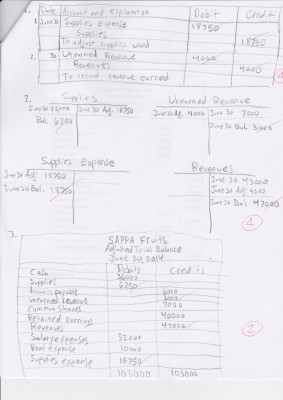 1. Date Account and explanation Debit Credit
1. June 30 Supplies Expense 18750
Supplies 18750
To adjust supplies used
2. 30 Unearned Revenue 4000
Revenues 4000
To record revenue earned
2. Supplies Unearned Revenue
June 30 June 30 Adj. 18750 June 30 Adj 4000 June 30 7000
Bal. 6250 June 30 Bal. 3000
Supplies Expense Revenues
June 30 Adj 18750 June 30 43000
June 30 Bal. 18750 June 30 Adj 4000
June 30 Bal 47000
4
3. SAPPA Fruits
Adjusted Trial Balance
June 30, 2014
Debits Credits
Cash 36000
Supplies 6250
Accounts payable 6000
Unearned revenue 3000
Common shares 7000
Retained Earnings 40000
Revenues 47000
Salary expenses 32000
Rent Expense 10000
Supplies expense 18750
103000 103000